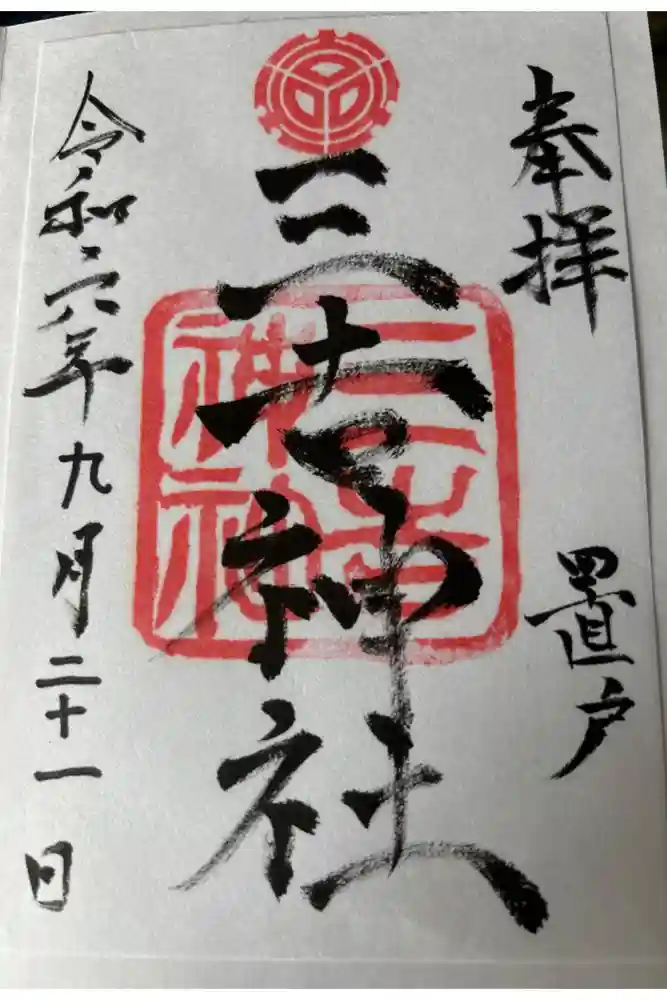 奉拝
置戸
三吉神社
令和六年九月二十一日